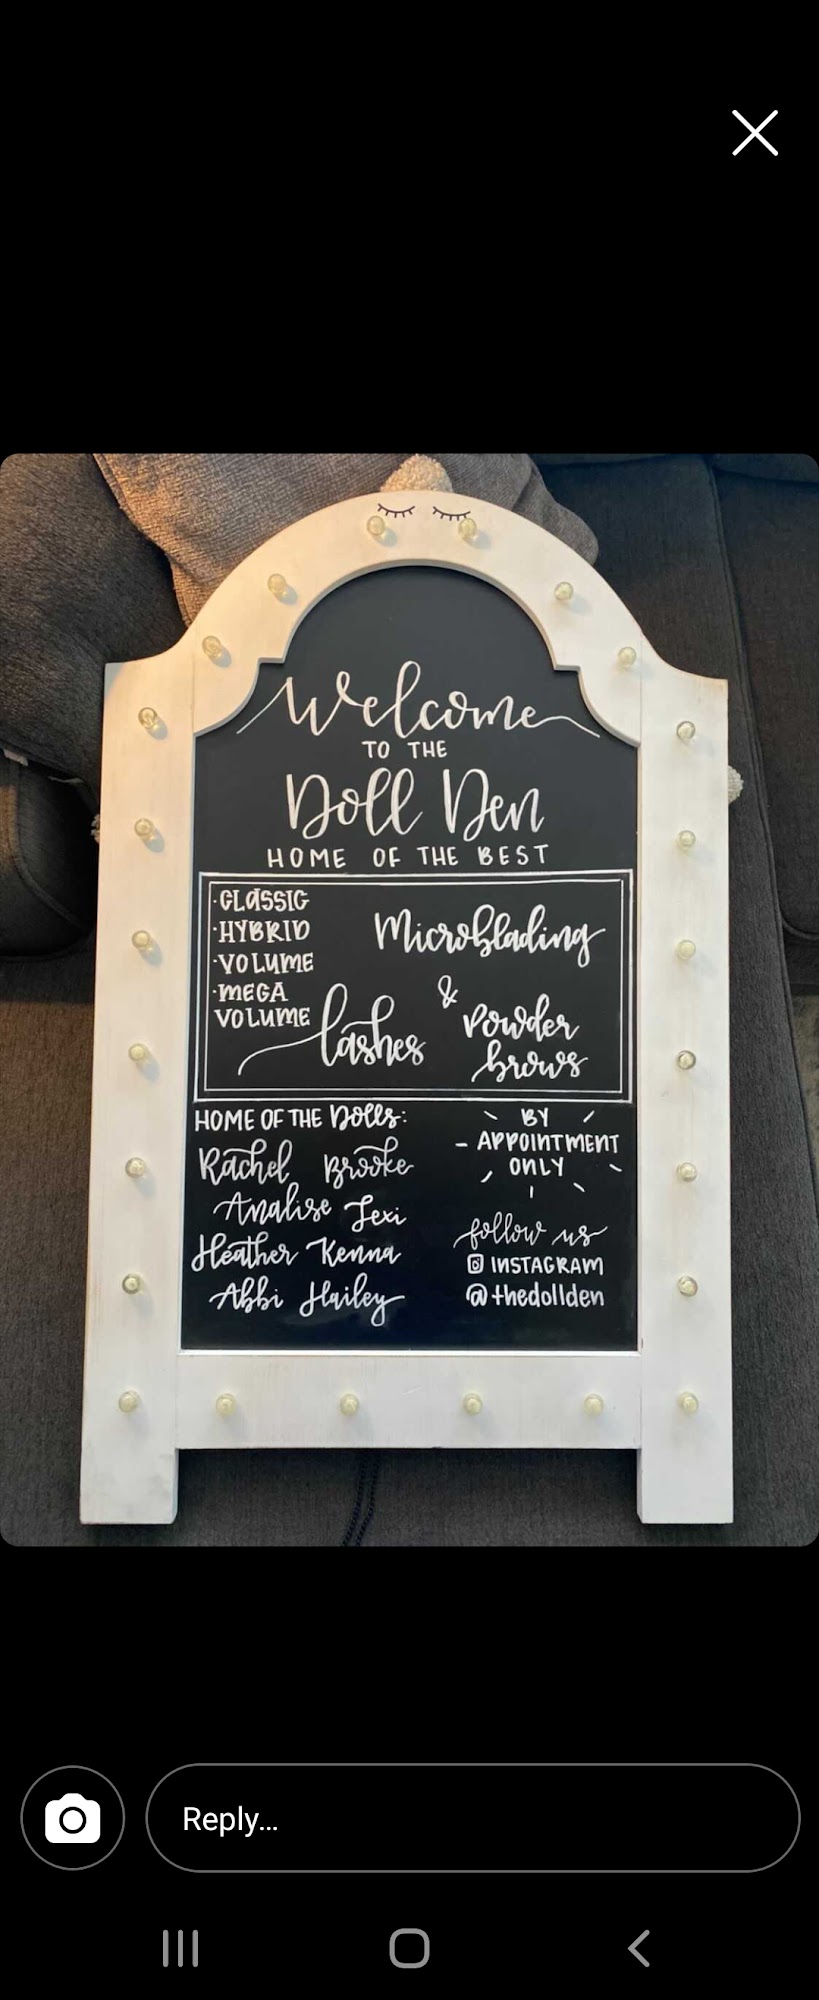 Welcome
TO THE
Doll Den
HOME OF THE BEST
·CLASSIC
·HYBRID
·VOLUME
·MEGA
VOLUME
lashes
Microblading
&
Powder
brows
HOME OF THE Dolls:
Rachel Brooke
Analise Lexi
Heather Kenna
Abbi Hailey
BY
APPOINTMENT
ONLY
follow us
INSTAGRAM
@thedollden
Reply...